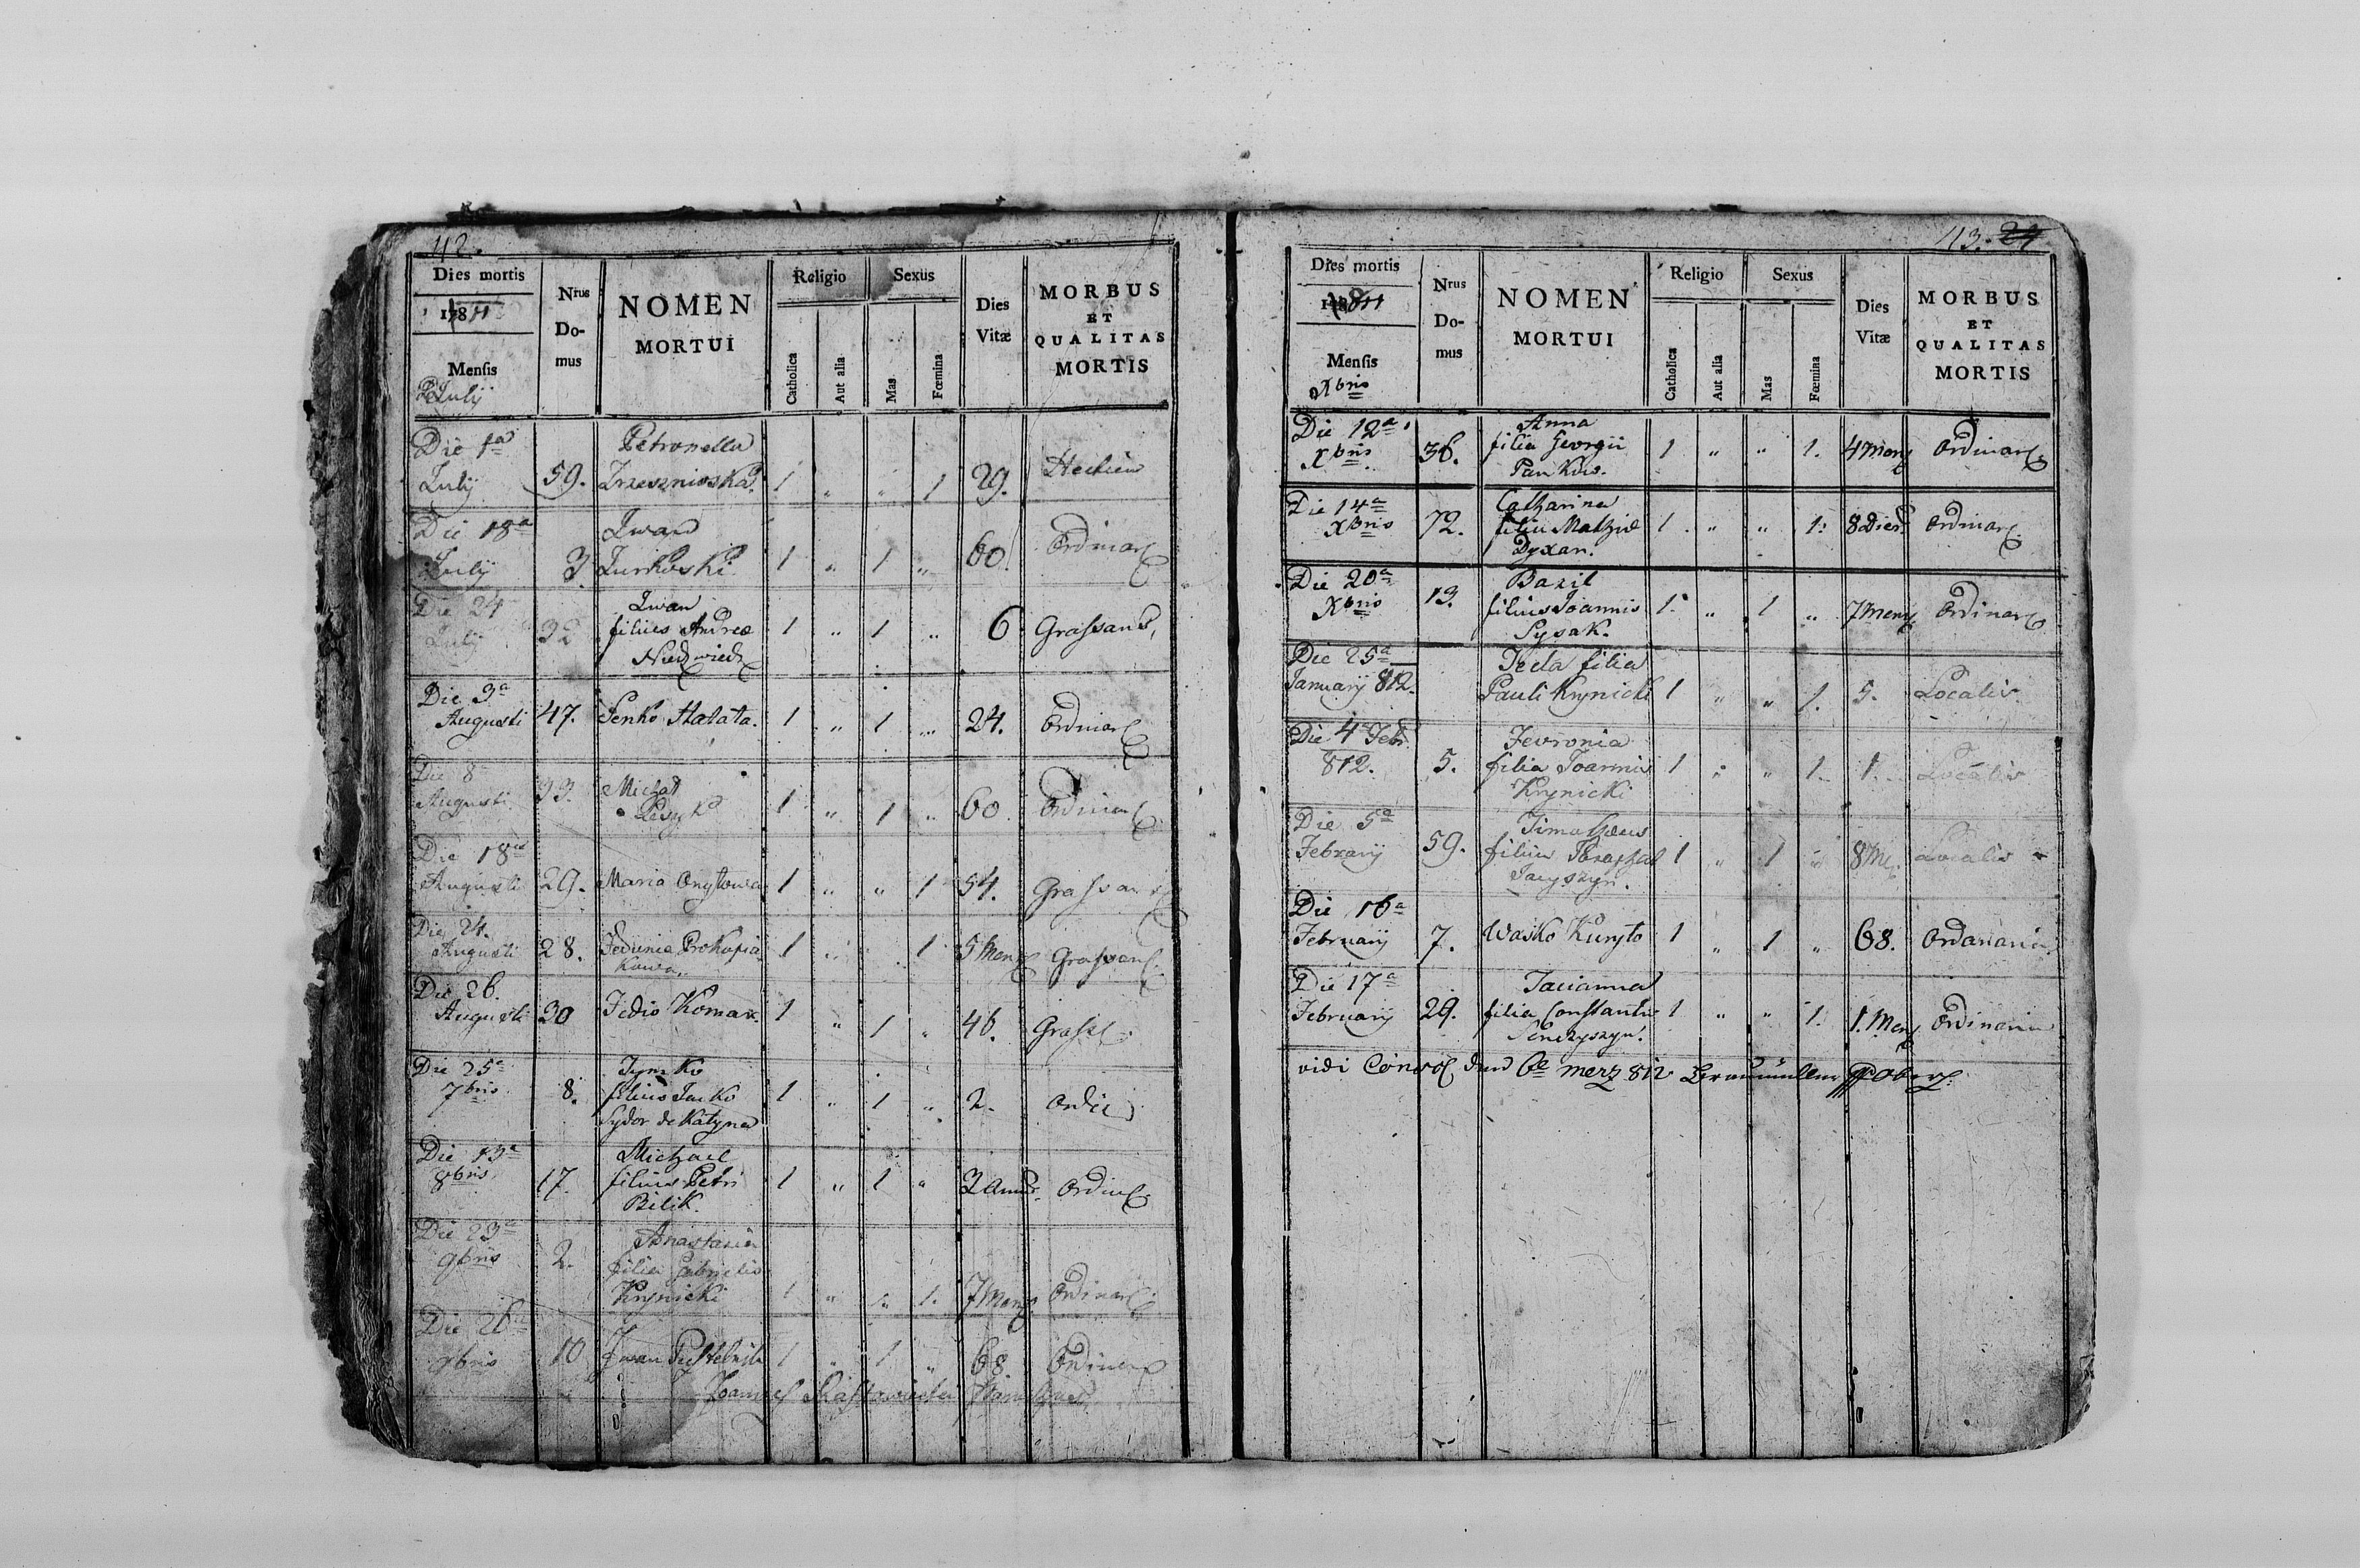 42.
Dies mortis
Nrus
Do-
mus
NOMEN
MORTUI
Religio
Catholica
Aut alia
Sexus
Mas
Fœmina
Dies
Vitæ
MORBUS
ET
QUALITAS
MORTIS
Mensis
July
Die 1a
July
59.
Petronella
1 „ „ 1
29.
Die 18a
July
3
Iwan
Zurkoski
1 „ 1 „
60.
Ordinar
Die 24
July
32
Iwan
filius Andreæ
Niedzwiedz
1 „ 1 „
6
Grassans
Die 3a
Augusti
47.
Senko Hałata.
1 „ 1 „
24.
Ordinar
Die 8
Augusti
33.
Michał
1 „ 1 „
60.
Ordinar
Die 18a
Augusti
29.
Maria Onytowa
1 „ „ 1
54.
Grassans
Die 24.
Augusti
28.
Fedunia Prokopia
kowa.
1 „ „ 1
5 Mens
Grassans
Die 26.
Augusti
30
Fedio Komar.
1 „ 1 „
46.
Grass
Die 25a
7bris
8.
Tymko
filius Jacko
Sydor de Katyna
1 „ 1 „
2.
Ordin
Die 13a
8bris
17.
Michael
filius Petri
Bilik.
1 „ 1 „
Ordin
Die 23a
9bris
2.
Anastasia
filia Gabrielis
Krynicki
1 „ „ 1.
7 Mens
Ordinar
Die 26
9bris
10
Iwan
1 „ 1 „
68
Ordinar
43. 24
Dies mortis
1811
Mensis
Xbris
Nrus
Do-
mus
NOMEN
MORTUI
Religio
Catholica
Aut alia
Sexus
Mas
Fœmina
Dies
Vitæ
MORBUS
ET
QUALITAS
MORTIS
Die 12a
Xbris
36.
Anna
filia Georgii
Pankow.
1 „ „ 1.
4 Mens
Ordinar
Die 14a
Xbris
72.
Catharina
filia Mathiæ
Dyxan.
1 „ „ 1.
8 Dies
Ordinar
Die 20a
Xbris
13.
Bazil
filius Joannis
Sysak.
1. „ 1 „
7 Mens
Ordinar
Die 25a
January 812.
Tecla filia
Pauli Krynicki
1 „ „ 1.
5.
Localis
Die 4 Febr
812.
5.
Fevronia
filia Joannis
Krynicki
1 „ „ 1.
1.
Localis
Die 5a
Febrarij
59.
Timotheus
filius
1 „ 1 „
8 M
Localis
Die 16a
Februarij
7.
Wasko Kuryto
1 „ 1 „
68.
Ordinaria
Die 17a
Februarij
29.
Tacianna
filia Constantin
Senczyszyn.
1 „ „ 1.
1. Mens
Ordinaria
vidi
merz 812